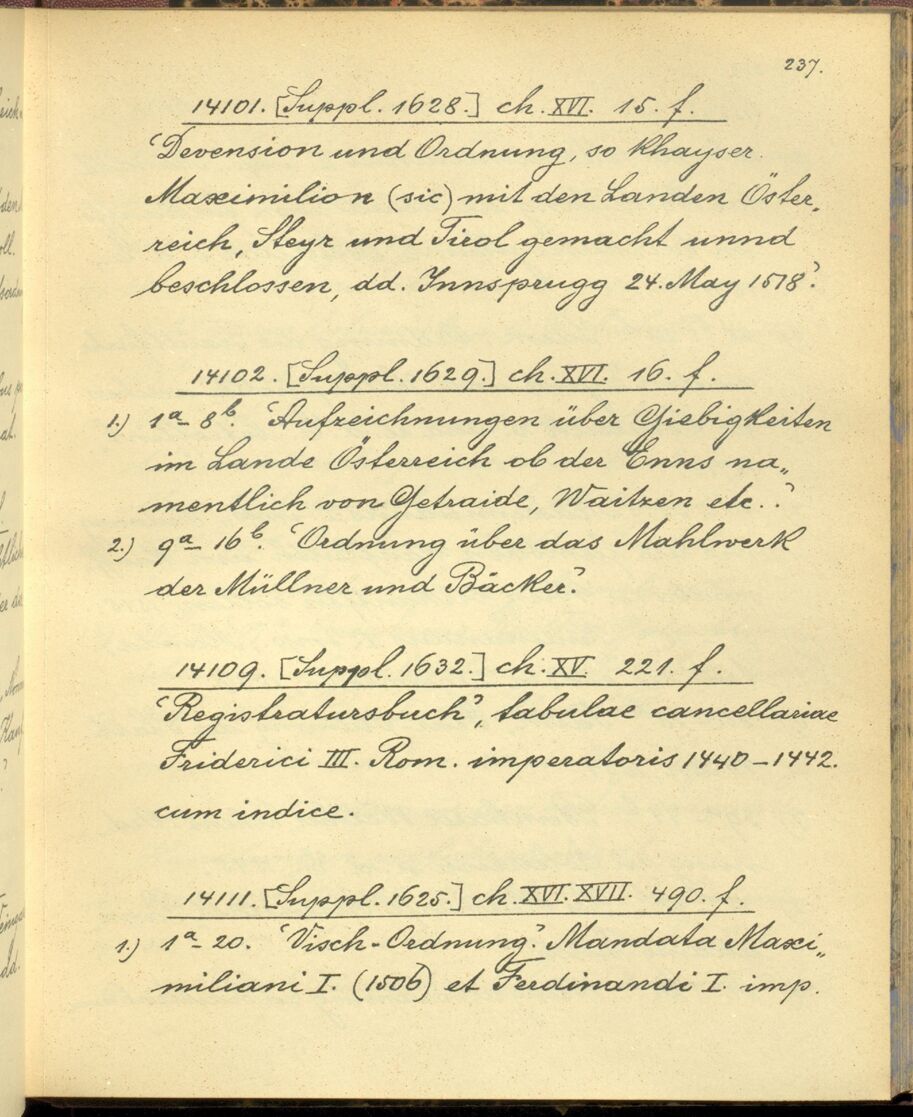 237.
14101. [Suppl. 1628.] ch. XVI. 15. f.
'Devension und Ordnung, so Khayser
Maximilion (sic) mit den Landen Öster„
reich, Steyr und Tirol gemacht unnd
beschlossen, dd. Innsprugg 24. May 1518'.
14102. [Suppl. 1629.] ch. XVI. 16. f.
1.) 1a–8b. 'Aufzeichnungen über Giebigkeiten
im Lande Österreich ob der Enns na„
mentlich von Getraide, Waitzen etc.'.
2.) 9a–16b. 'Ordnung über das Mahlwerk
der Müllner und Bäcker'.
14109. [Suppl. 1632.] ch. XV. 221. f.
'Registratursbuch', tabulae cancellariae
Friderici III. Rom. imperatoris 1440–1442.
cum indice.
14111. [Suppl. 1625.] ch. XVI. XVII. 490. f.
1.) 1a–20. 'Visch-Ordnung'. Mandata Maxi„
miliani I. (1506) et Ferdinandi I. imp.